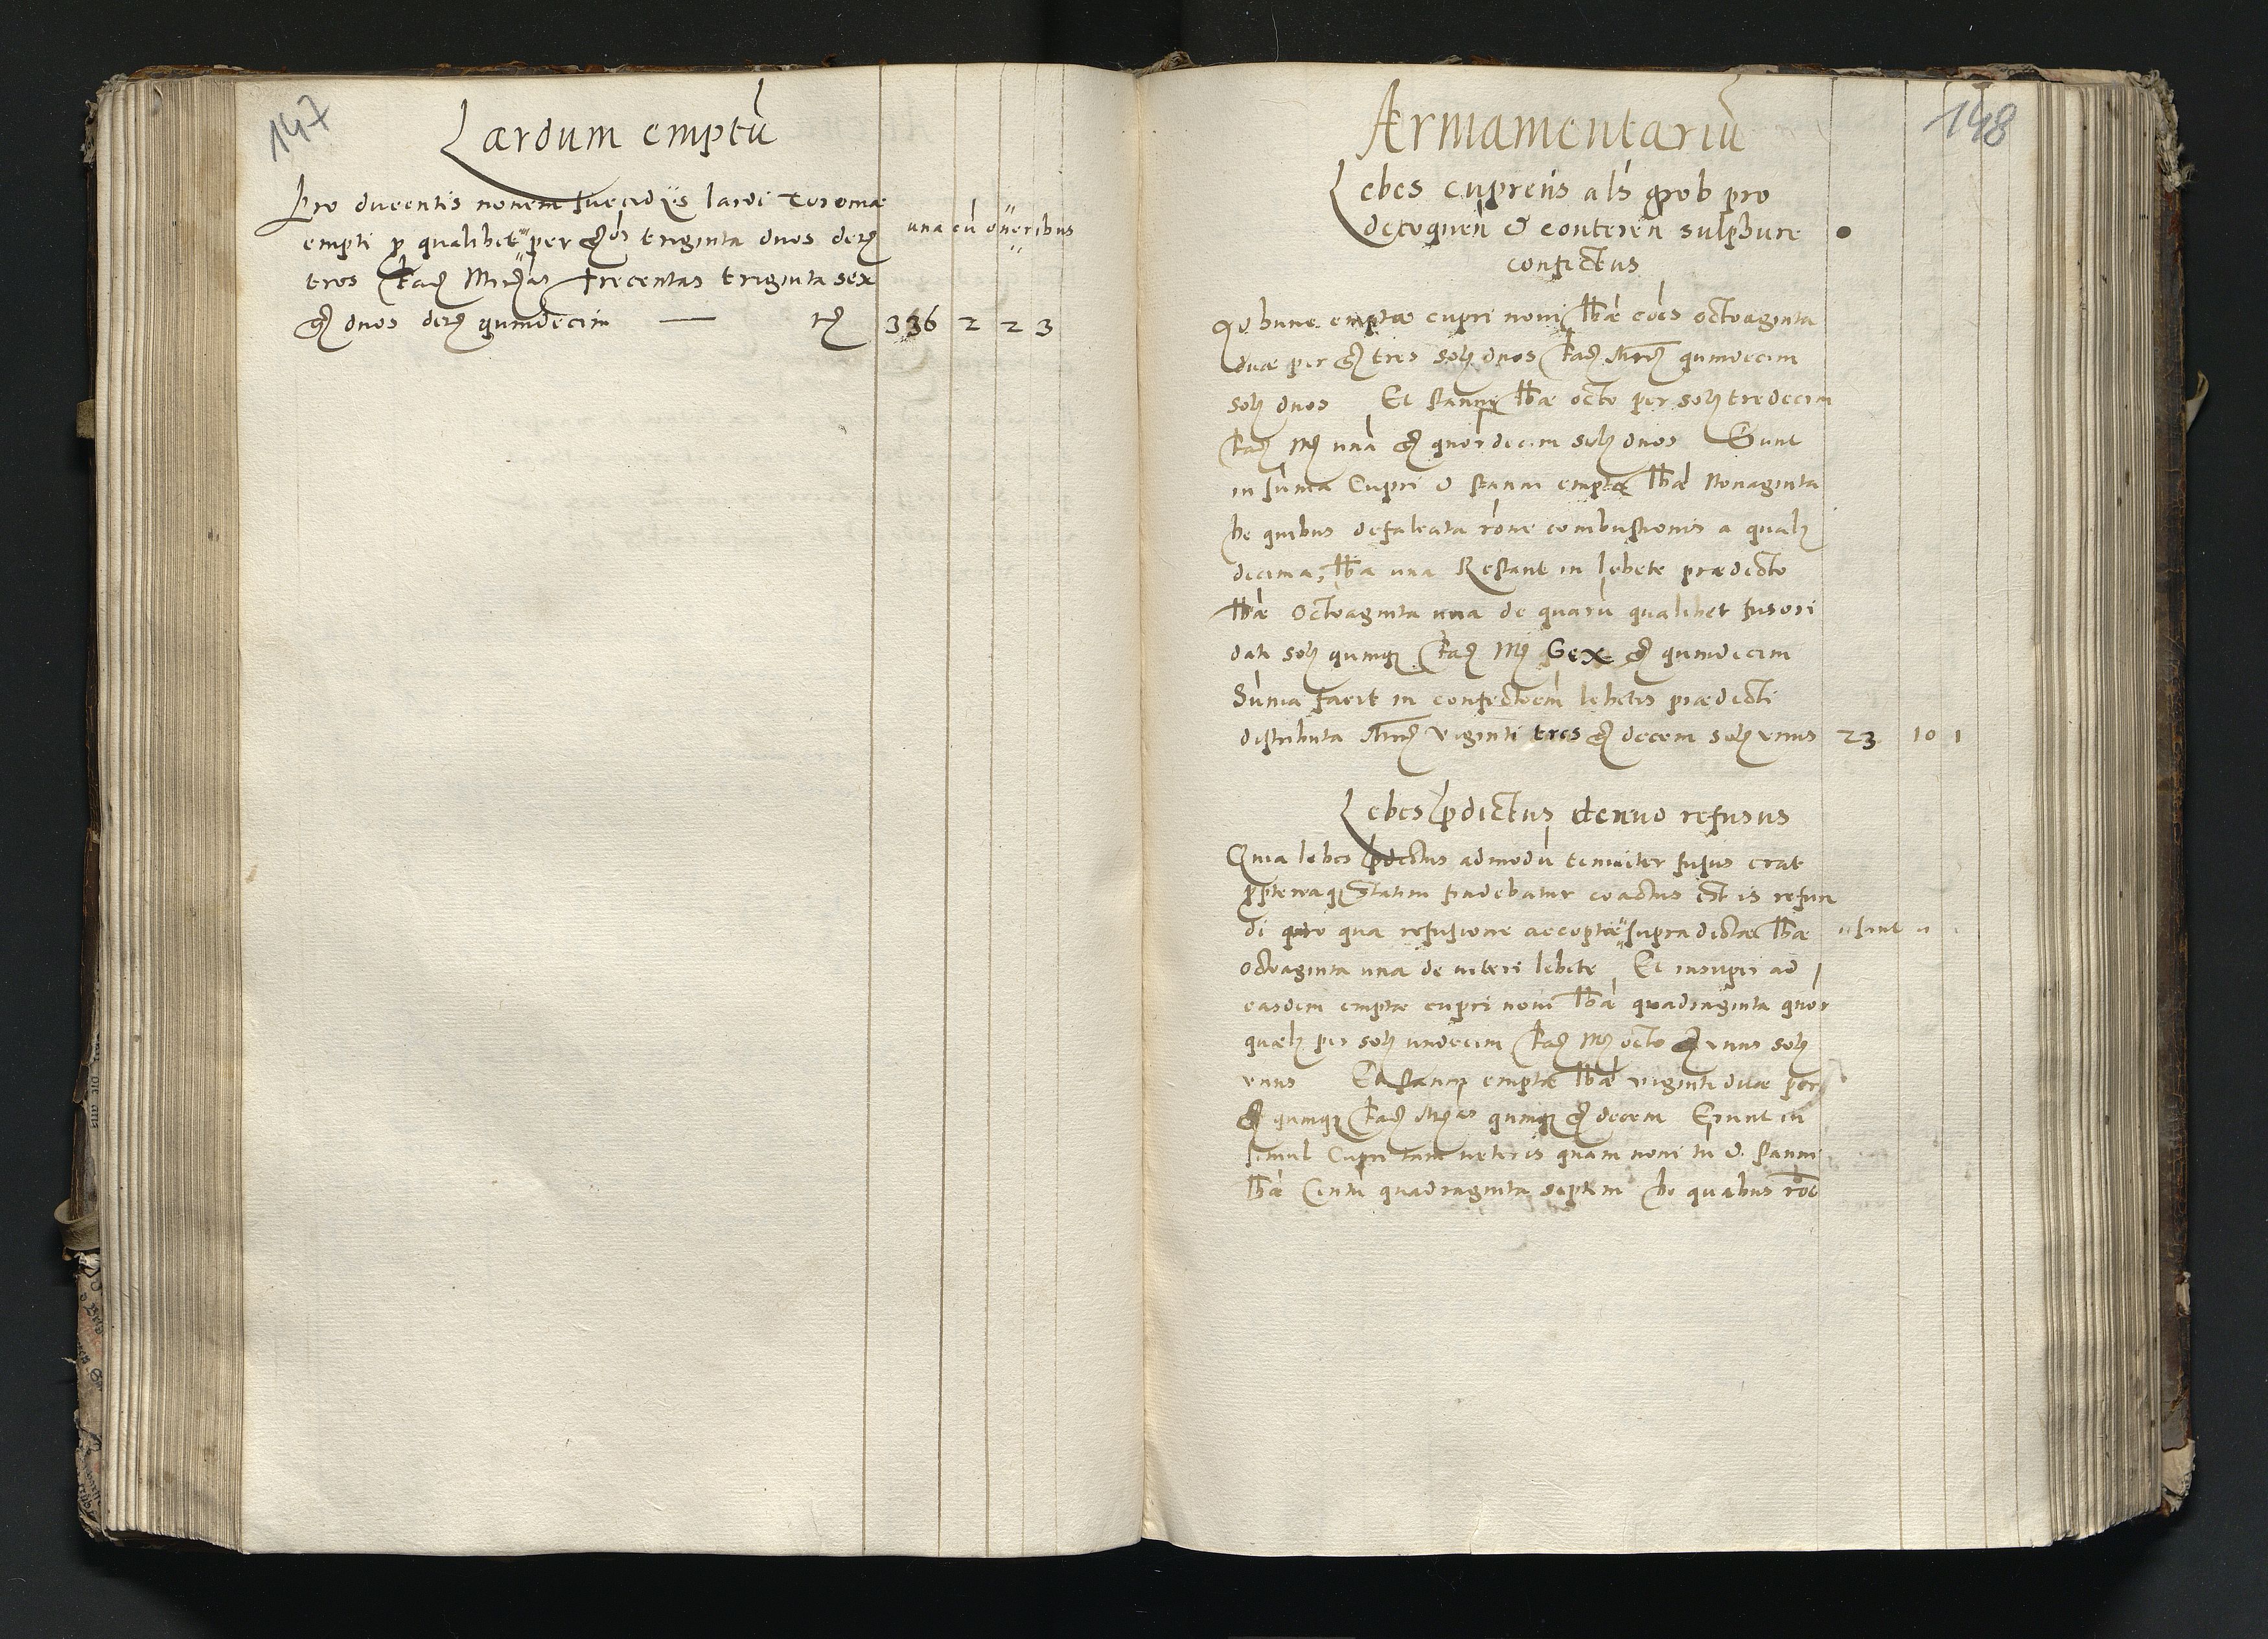 147
Lardum emptū
Pro ducentis nonem succidijs lardi Toroniæ
empti ꝑ qualibet per gͦꝛ triginta duos deñ
tres fač Mrčas trecentas triginta sex
g duos deñ quindecim — fč 336 2 2 3
una cū oneribus
148
Armamentariū
Lebes cupreus als grob pro
decoquen̄ & conteren̄ sulphure
confectus
Ad hunc emptæ cupri noui lbæ cōes octoaginta
duæ per g tres soł duos fač Mrč quindecim
soł duos Et stanni lbæ octo per soł tredecim
fač Mč unā g quordecim soł duos Sunt
in sum̄a Cupri & stanni emptæ lbæ Nonaginta
De quibus defalcata rōne combustionis a qualꝫ
decima, lba una Restant in lebete prædicto
lbæ Octoaginta una de quarū qualibet fusori
dati soł quinqꝫ fač Mč Sex g quindecim
Sum̄a facit in confectōem lebetis prædicti
distributa Mrč viginti tres g decem soł unus 23 10 1
Lebes p̄dictus denuo refusus
Quia lebes p̄dictus admodū tenuiter fusus erat
ꝓptereaqꝫ statim findebatur coactus est is refun
di pro qua refusione acceptæ supradictæ lbæ
sunt
Octoaginta una de veteri lebete Et insuper ad
easdem emptæ cupri noui lbæ quadraginta quor
quælꝫ per soł undecim fač Mč octo g unus soł
unus Et stanni emptæ lbæ viginti duæ per
g quinqꝫ fač Mrčas quinqꝫ g decem Erunt in
simul Cupri tam veteris quam noui tū & stanni
lbæ Centū quadraginta septem De quabus rōe